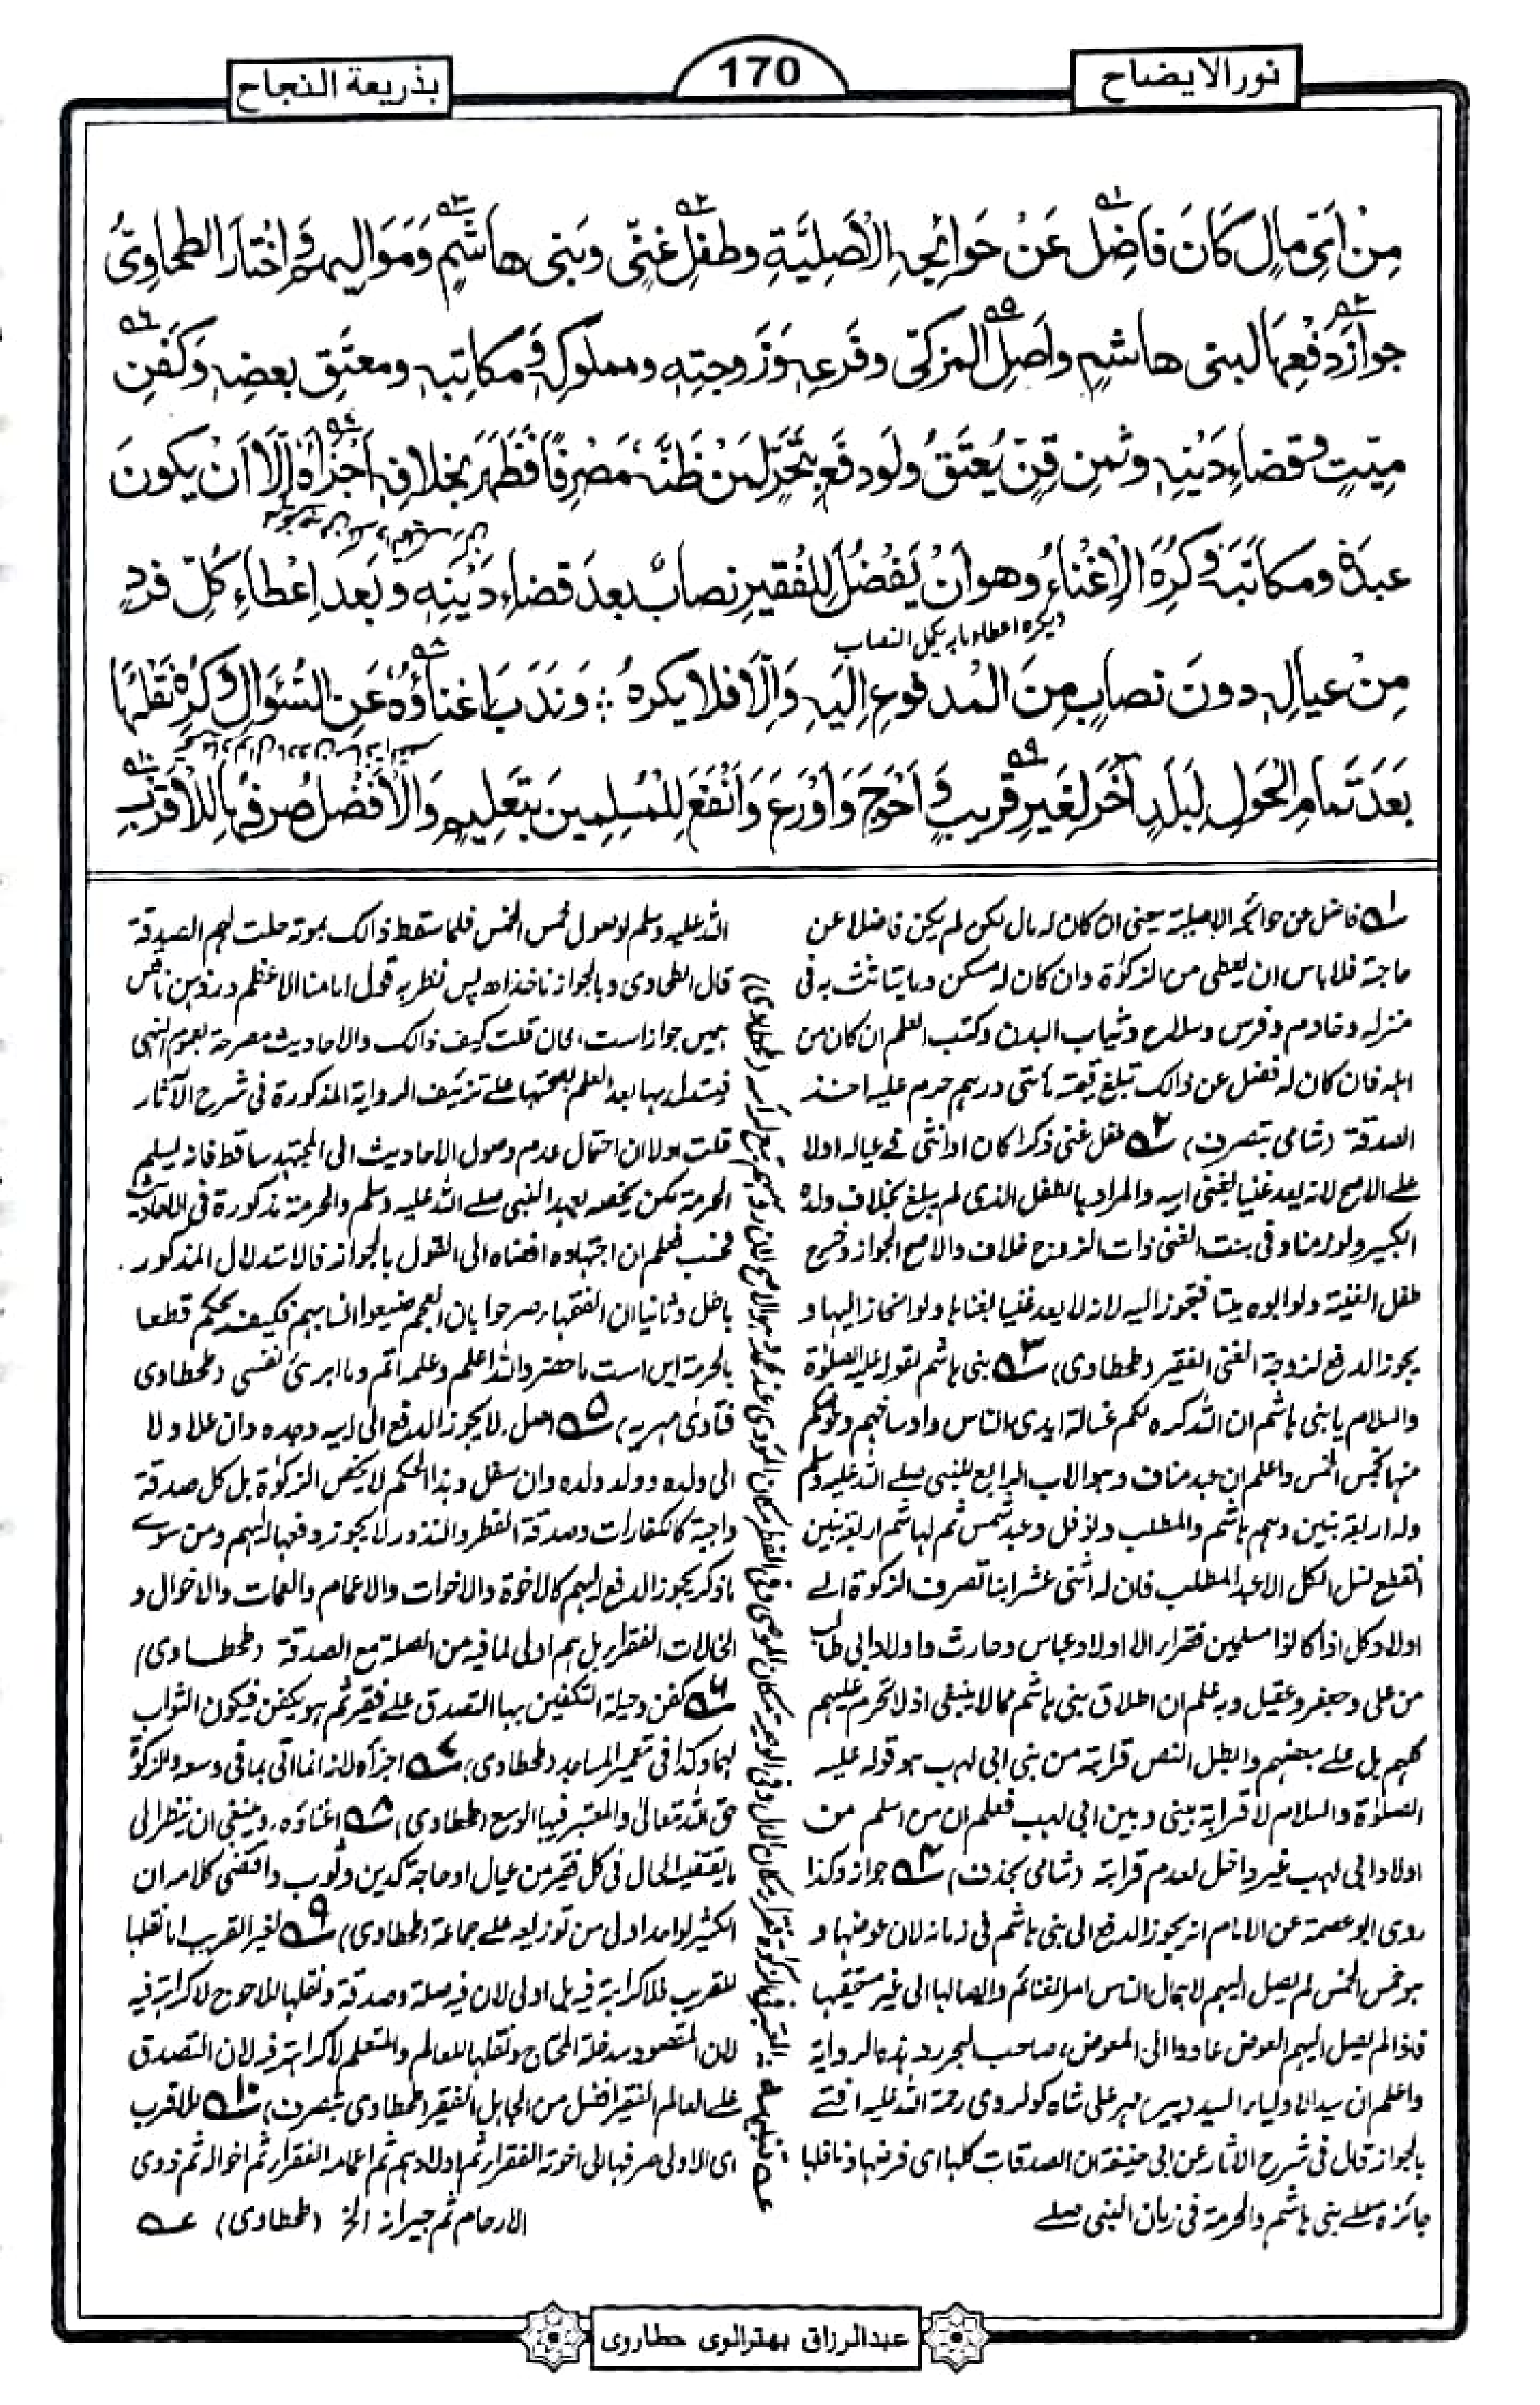 نور الايضاح
170
بذريعة النجاح
مِنْ اَيِّ مالٍ كَانَ فَاضِلٍ عَنْ حَوَائِجِهِ الْاَصْلِيَّةِ وطفلِ غَنِيٍّ وبَنِى هاشمٍ وَمَوَالِيهم وَاخْتَارَ الطحاوِيُّ
جوازَ دفعِهَا لبنى هاشمٍ واَصلِ المزكّى وفرعِهٖ وَزَوجتِهٖ ومملوكِهٖ ومكاتبِهٖ ومعتَقِ بعضِهٖ وَكَفَنِ
ميتٍ وقضاءِ دَيْنِهٖ وثمنِ قِنٍّ يُعتَقُ ولَو دفَعَ بِتَحَرٍّ لمَنْ ظَنَّهٗ مَصْرِفًا فَظَهَرَ بخلافِهٖ اَجْزَأَهٗ اِلَّا اَنْ يكونَ
عبدَهٗ ومكاتَبَهٗ وكُرِهَ الْاِغْنَاءُ وهو اَنْ يَفْضُلَ لِلْفقيرِ نصابٌ بعدَ قضاءِ دَيْنِهٖ وبَعدَ اِعْطَاءِ كُلِّ فردٍ
مِنْ عيالِهٖ دونَ نصابٍ مِنَ المدفوعِ اِليهِ وَاِلَّا فلا يكرهُ ؛ وَنَدَبَ اِغناؤُهٗ عَنِ السُّؤَالِ وَكُرِهَ نَقْلُهَا
بَعدَ تَمامِ الحَولِ لِبَلَدٍ آخَرَ لِغَيرِ قريبٍ وَ اَحْوَجَ وَاَوْرَعَ وَاَنْفَعَ لِلْمُسلِمينَ بتَعلِيمٍ وَالْاَفْضَلُ صَرفُهَا لِلْاَقْرَبِ
۱ فاضل عن حوائجه الاصلية يعنى ان كان له مال لكن لم يكن فاضلا عن
حاجته فلا باس ان يعطى من الزكوٰة وان كان له مسكن وما يتاثث به فى
منزله وخادم وفرس وسلاح وثياب البدن وكتب العلم ان كان من
اهله فان كان له فضل عن ذالك تبلغ قيمته مأتى درهم حرم عليه اخذ
الصدقة (شامى بتصرف) ۲ طفل غنى ذكرا كان او انثى فى عياله اولا
على الاصح لانه يعد غنيا بغنى ابيه والمراد بالطفل الذى لم يبلغ بخلاف ولده
الكبير ولو زمنا وفى بنت الغنى ذات الزوج خلاف والاصح الجواز وخرج
طفل الغنية ولو ابوه ميتا فيجوز اليه لانه لا يعد غنيا بغناها ولو انحاز اليها و
يجوز الدفع لزوجة الغنى الفقير (طحطاوى) ۳ بنى هاشم لقوله عليه الصلوٰة
والسلام يا بنى هاشم ان الله كره لكم غسالة ايدى الناس واوساخهم وعوضكم
منها بخمس الخمس واعلم ان عبد مناف وهو الاب الرابع للنبى صلے الله عليه وسلم
وله اربعة بنين وهم هاشم والمطلب ونوفل وعبد شمس ثم لهاشم اربعة بنين
انقطع نسل الكل الا عبد المطلب فان له اثنى عشر ابنا تصرف الزكوة الے
اولاد كل اذا كانوا مسلمين فقراء الا اولاد عباس وحارث واولاد ابى طالب
من على وجعفر وعقيل وبه علم ان اطلاق بنى هاشم مما لا ينبغى اذ لا تحرم عليهم
كلهم بل على بعضهم وابطل النص قرابته من بنى ابى لهب هو قوله عليه
الصلوٰة والسلام لا قرابة بينى وبين ابى لهب فعلم ان من اسلم من
اولاد ابى لهب غير داخل لعدم قرابته (شامى بحذف) ۴ جواز وكذا
روى ابو عصمة عن الامام انه يجوز الدفع الى بنى هاشم فى زمانه لان عوضها و
هو خمس الخمس لم يصل اليهم لاهمال الناس امر الغنائم وايصالها الى غير مستحقيها
فاذا لم يصل اليهم العوض عادوا الى المعوض، صاحب البحر رد هذه الرواية
واعلم ان سيد الاولياء السيد پير مهر على شاه گولڑوى رحمة الله عليه افتے
بالجواز قال فى شرح الاثار عن ابى حنيفة ان الصدقات كلها اى فرضها ونافلها
جائزه علے بنى هاشم والحرمة فى زمان النبى صلے
الله عليه وسلم لوصول خمس الخمس فلما سقط ذالك بموته حلت لهم الصدقة
قال الطحاوى وبالجواز ناخذ اھ پس نظر به قول امامنا الاعظم
ہمیں جواز است، فان قلت كيف ذالك والاحاديث مصرحة بعموم النهى
فيستدل بها بعد العلم بصحتها على تزئيف الرواية المذكورة فى شرح الآثار
قلت اولا ان احتمال عدم وصول الاحاديث الى المجتهد ساقط فانه يسلم
الحرمة لكن يخصه بعهد النبى صلے الله عليه وسلم والحرمة مذكورة فى الاحاديث
فحسب فعلم ان اجتهاده افضاه الى القول بالجواز فالاستدلال المذكور.
باطل وثانيا ان الفقهاء صرحوا بان العجم ضيعوا انسابهم فكيف يحكم قطعا
بالحرمة ايں است ما حضر والله اعلم وعلمه اتم وما ابرئ نفسى (طحطاوى
فتاوى مهريه) ۵ اصل، لا يجوز الدفع الى ابيه وجده وان علا ولا
الى ولده وولد ولده وان سفل وهذا الحكم لا يخص الزكوٰة بل كل صدقة
واجبة كالكفارات وصدقة الفطر والنذور لا يجوز دفعها لهم ومن سوے
ما ذكر يجوز الدفع اليهم كالاخوة والاخوات والاعمام والعمات والاخوال و
الخالات الفقراء بل هم اولى لما فيه من الصلة مع الصدقة (طحطاوى)
۶ كفن وحيلة التكفين بها التصدق على فقير ثم هو يكفن فيكون الثواب
لهما وكذا فى تعمير المساجد (طحطاوى) ۷ اجزأه لانه انما اتى بما فى وسعه والزكوة
حق الله تعالىٰ والمعتبر فيها الوسع (طحطاوى) ۸ اغناؤه، وينبغى ان ينظر الى
ما يقتضيه الحال فى كل فقير من عيال او حاجة كدين وثوب واقتضى كلامه ان
الكثير لواحد اولى من توزيعه على جماعة (طحطاوى) ۹ لغير القريب اما نقلها
للقريب فلا كراهة فيه بل اولى لان فيه صلة وصدقة ونقلها للاحوج لا كراهة فيه
لان المقصود سد خلة المحتاج ونقلها للعالم والمتعلم لا كراهة فيه لان التصدق
على العالم الفقير افضل من الجاهل الفقير (طحطاوى بتصرف) ۱۰ للاقرب
اى الاولى صرفها الى اخوته الفقراء ثم اولادهم ثم اعمامه الفقراء ثم اخواله ثم ذوى
الارحام ثم جيرانه الخ (طحطاوى)
عبدالرزاق بهترالوى حطاروى